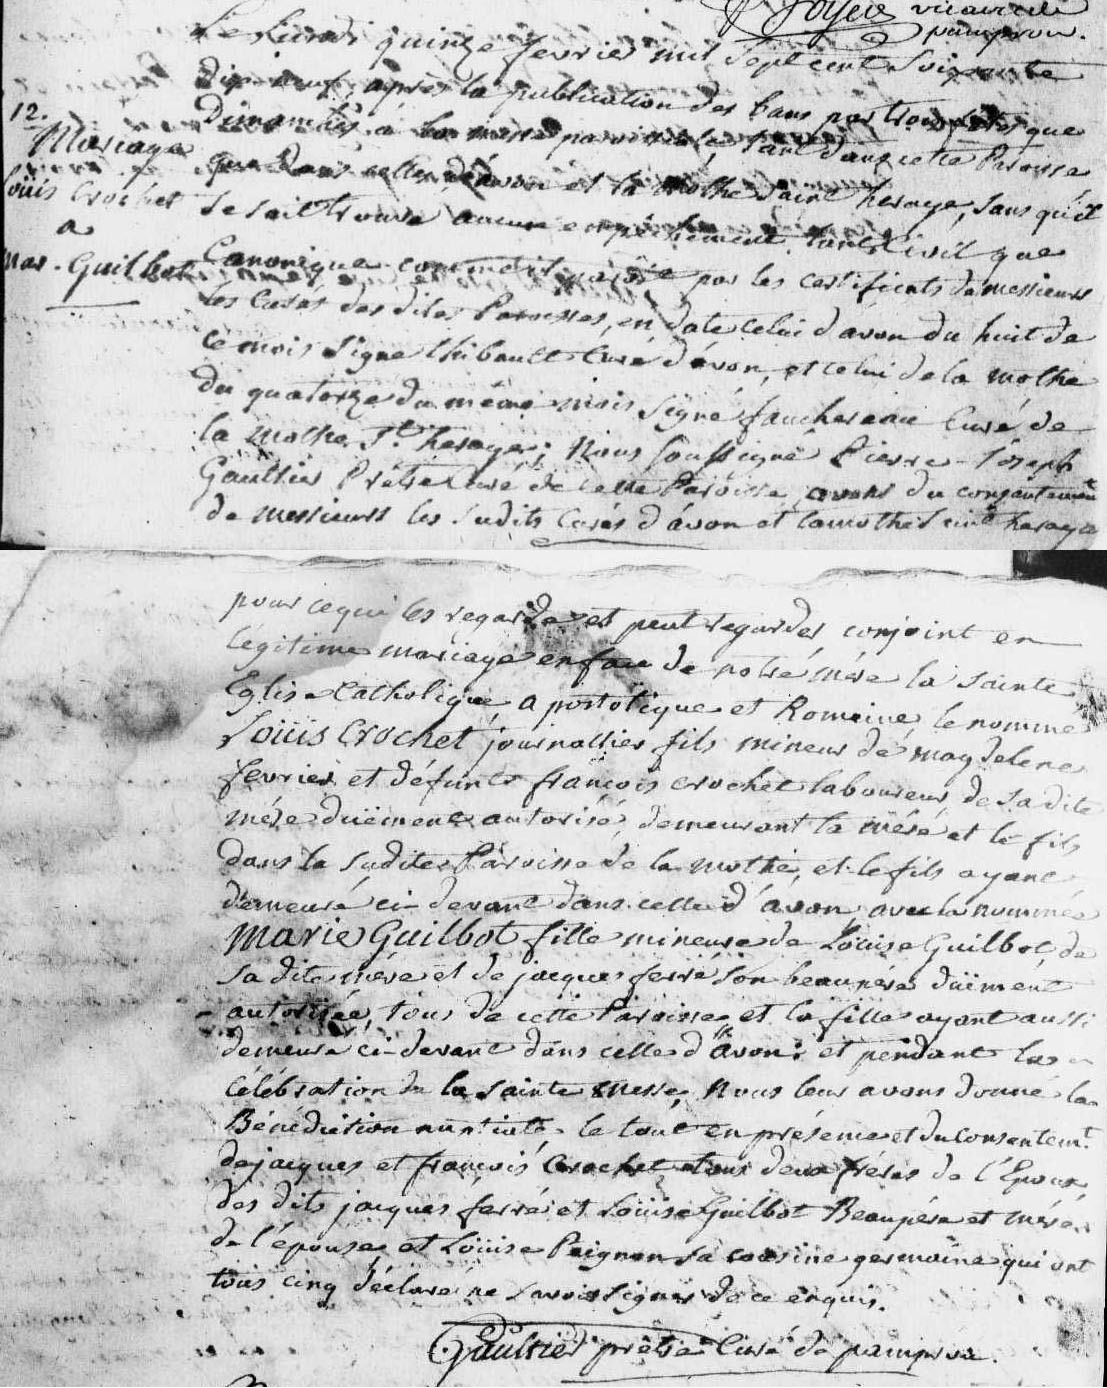 Foyer vicaire de
pamprou.
Le Lundi quinze fevrier mil sept cent soixante
dix neuf, après la publication des bans par trois
Dimanches à la messe paroissiale, tant dans cette Paroisse
que dans celles d'avon et la Mothe saint heraye, sans qu'il
se soit trouvé aucun empêchement tant Civil que
Canonique comme il par les certificats de messieurs
les Curés des dites Paroisses, en date celui d'avon du huit de
ce mois signé thibault Curé d'avon, et celui de la mothe
du quatorze du même mois signé fauchereau Curé de
la mothe St. heraye; Nous soussigné Pierre-Joseph
Gaultier Prêtre Curé de cette Paroisse, avons du consentement
de messieurs les susdits Curés d'avon et lamothe saint heraye
12.
Mariage
Loüis Crochet
a
mar. Guilbot
pour ce qui les regarde et peut regarder conjoint en
légitime mariage en face de notre mère la sainte
Eglise Catholique, apostolique et Romaine, le nommé
Loüis Crochet journallier fils mineur de magdelene
fevrier et défunt françois crochet laboureur, de sa dite
mére düement autorisé, demeurant la mére et le fils
dans la susdite Paroisse de la mothe, et le fils ayant
demeuré ci-devant dans celle d'avon, avec la nommée
Marie Guilbot fille mineure de Loüise Guilbot, de
sa dite mére et de jacques ferré son beaupére düiment
autorisée, tous de cette Paroisse et la fille ayant aussi
demeuré ci-devant dans celle d'avon: et pendant la
Célébration de la sainte Messe, Nous leur avons donné la
Bénédiction nuptiale le tout en présence et du consentemt.
de jacques et françois Crochet tous deux fréres de l'Epoux
des dits jacques ferré et Loüise Guilbot Beaupére et mére
de l'épouse, et Loüise Peignon sa cousine germaine qui ont
tous cinq déclaré ne savoir signer de ce enquis.
Gaultier prêtre Curé de pamprou.